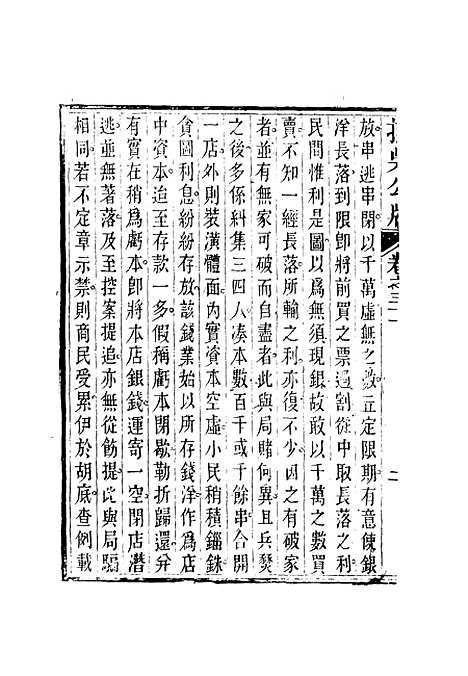 撫吳公牘 卷三十二 二
放串逃串閉以千萬虛無之數立定限期有意使銀
洋長落到限卽將前買之票過割從中取長落之利
民間惟利是圖以爲無須現銀故敢以千萬之數買
賣不知一經長落所輸之利亦復不少因之有破家
者並有無家可破而自盡者此與局賭何異且兵燹
之後多係糾集三四人湊本數百千或千餘串合開
一店外則裝潢體面內實資本空虛小民稍積錙銖
貪圖利息紛紛存放該錢業始以所存錢洋作爲店
中資本迨至存款一多假稱虧本閉歇勒折歸還兌
有實在稍爲虧本卽將本店銀錢運寄一空閉店潛
逃並無著落及至控案提追亦無從飭提此與局騙
相同若不定章示禁則商民受累伊於胡底查例載